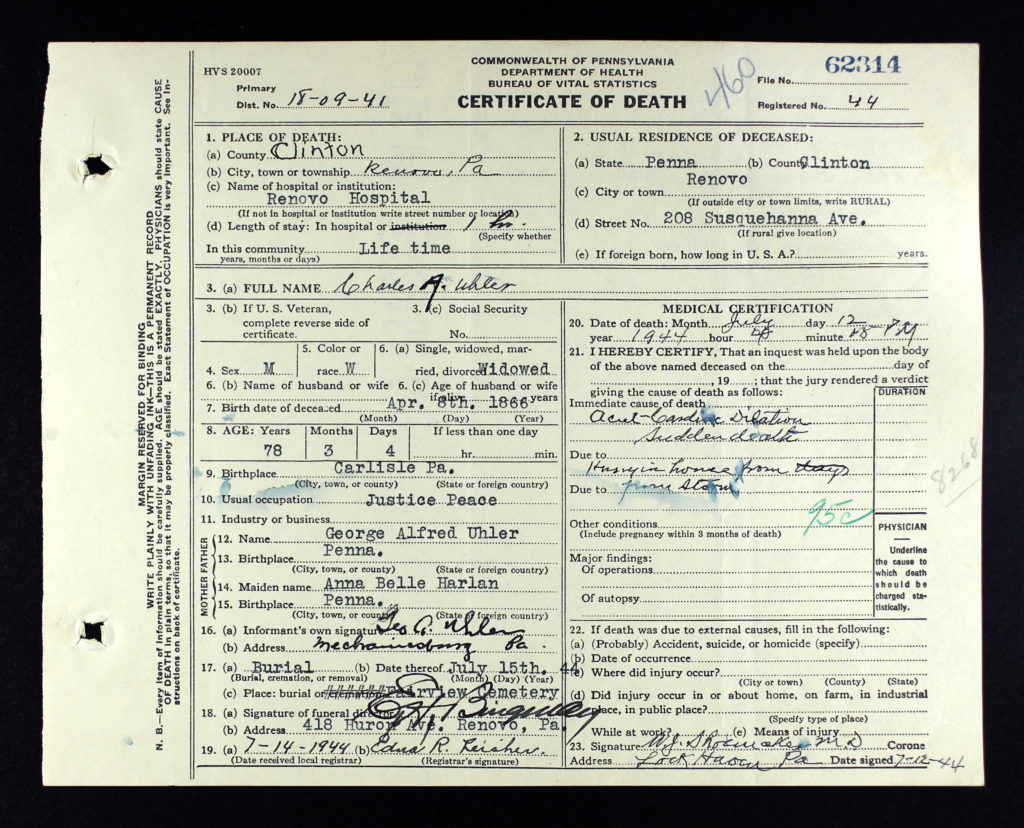 HVS 20007
COMMONWEALTH OF PENNSYLVANIA
DEPARTMENT OF HEALTH
BUREAU OF VITAL STATISTICS
CERTIFICATE OF DEATH
460
62314
File No.
Primary
Dist. No. 18-09-41
Registered No. 44
MARGIN RESERVED FOR BINDING
WRITE PLAINLY WITH UNFADING INK—THIS IS A PERMANENT RECORD
N. B.—Every item of information should be carefully supplied. AGE should be stated EXACTLY. PHYSICIANS should state CAUSE
OF DEATH in plain terms, so that it may be properly classified. Exact Statement of OCCUPATION is very important. See In-
structions on back of certificate.
1. PLACE OF DEATH:
(a) County Clinton
(b) City, town or township Renovo, Pa
(c) Name of hospital or institution:
Renovo Hospital
(If not in hospital or institution write street number or location)
(d) Length of stay: In hospital or institution 1 hr.
(Specify whether
In this community Life time
years, months or days)
2. USUAL RESIDENCE OF DECEASED:
(a) State Penna (b) County Clinton
Renovo
(c) City or town
(If outside city or town limits, write RURAL)
(d) Street No. 208 Susquehanna Ave.
(If rural give location)
(e) If foreign born, how long in U. S. A.? years.
3. (a) FULL NAME Charles A. Uhler
3. (b) If U. S. Veteran,
complete reverse side of
certificate.
3. (c) Social Security
No.
4. Sex M
5. Color or
race W
6. (a) Single, widowed, mar-
ried, divorced Widowed
6. (b) Name of husband or wife
6. (c) Age of husband or wife
if alive years
7. Birth date of deceased Apr. 8th. 1866
(Month) (Day) (Year)
8. AGE: Years Months Days If less than one day
78 3 4 hr. min.
9. Birthplace Carlisle Pa.
(City, town, or county) (State or foreign country)
10. Usual occupation Justice Peace
11. Industry or business
FATHER
12. Name George Alfred Uhler
13. Birthplace Penna.
(City, town, or county) (State or foreign country)
MOTHER
14. Maiden name Anna Belle Harlan
15. Birthplace Penna.
(City, town, or county) (State or foreign country)
16. (a) Informant's own signature Geo A. Uhler
(b) Address Mechanicsburg Pa.
17. (a) Burial (b) Date thereof July 15th. 44
(Burial, cremation, or removal) (Month) (Day) (Year)
(c) Place: burial or ######## Fairview Cemetery
18. (a) Signature of funeral director Bingman
(b) Address 418 Huron Ave. Renovo, Pa.
19. (a) 7-14-1944 (b) Edna R.
(Date received local registrar) (Registrar's signature)
MEDICAL CERTIFICATION
20. Date of death: Month July day 12
year 1944 hour minute PM
21. I HEREBY CERTIFY, That an inquest was held upon the body
of the above named deceased on the day of
, 19 ; that the jury rendered a verdict
giving the cause of death as follows:
DURATION
Immediate cause of death
Acut Cardiac Dilation
Sudden death
Due to
Hurryin house from
Due to from Storm
95c
8268
Other conditions
(Include pregnancy within 3 months of death)
Major findings:
Of operations
Of autopsy
PHYSICIAN
—
Underline
the cause to
which death
should be
charged sta-
tistically.
22. If death was due to external causes, fill in the following:
(a) (Probably) Accident, suicide, or homicide (specify)
(b) Date of occurrence
(c) Where did injury occur?
(City or town) (County) (State)
(d) Did injury occur in or about home, on farm, in industrial
place, in public place?
(Specify type of place)
While at work? (e) Means of injury
23. Signature W.J. Shoemaker MD Corone
Address Lock Haven Pa Date signed 7-12-44